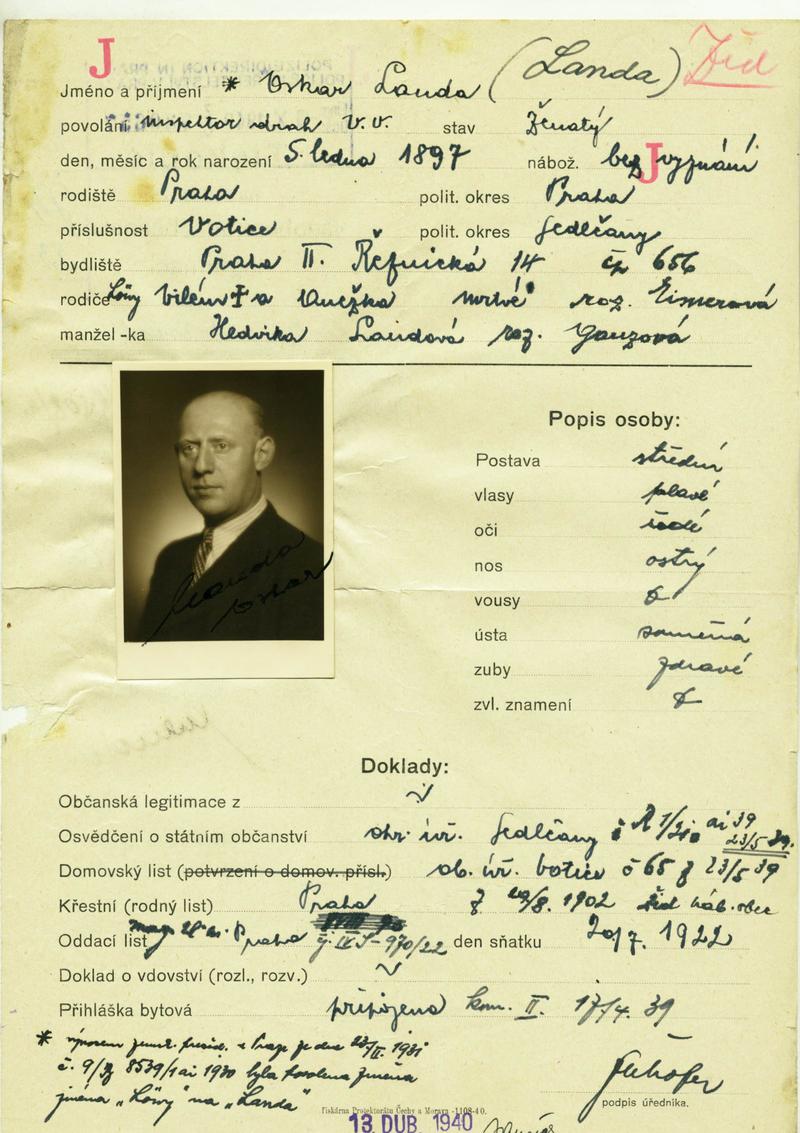 J
Jméno a přijmení * Oskar Landa (Landa) Žid
povolání inspektor drah v.v. stav Ženatý
den, měsíc a rok narození 5. ledna 1897 nábož. bez vyznání
J
rodiště Praha polit. okres Praha
příslušnost Votice polit. okres Sedlčany
bydliště Praha II. Řeznická 14 čp 656
rodiče Löwy Vilém a Anežka mrtvé roz. Eisnerová
manžel -ka Hedvika Landová roz. Ganzová
Popis osoby:
Postava střední
vlasy plavé
oči šedé
nos ostrý
vousy
ústa souměrná
zuby zdravé
zvl. znamení
Landa
Oskar
Doklady:
Občanská legitimace z
Osvědčení o státním občanství okr. úř. Sedlčany č ai 39
23/5 39.
Domovský list (potvrzení o domov. přísl.) ob. úř. Votice č 65 z 23/5 39
Křestní (rodný list) Praha z /8. 1902 žid náb. obce
Oddací list Praha 970/22 den sňatku 20/7. 1922
Doklad o vdovství (rozl., rozv.)
Přihláška bytová připojena kom. II. 17/4. 39
* výnosem zemsk. presid. v Praze ze dne 1931
č. 8539/1 ai 1930 byla povolena změna
jména „Löwy" na „Landa"
podpis úředníka.
Tiskárna Protektorátu Čechy a Morava -1108-40.
13. DUB. 1940